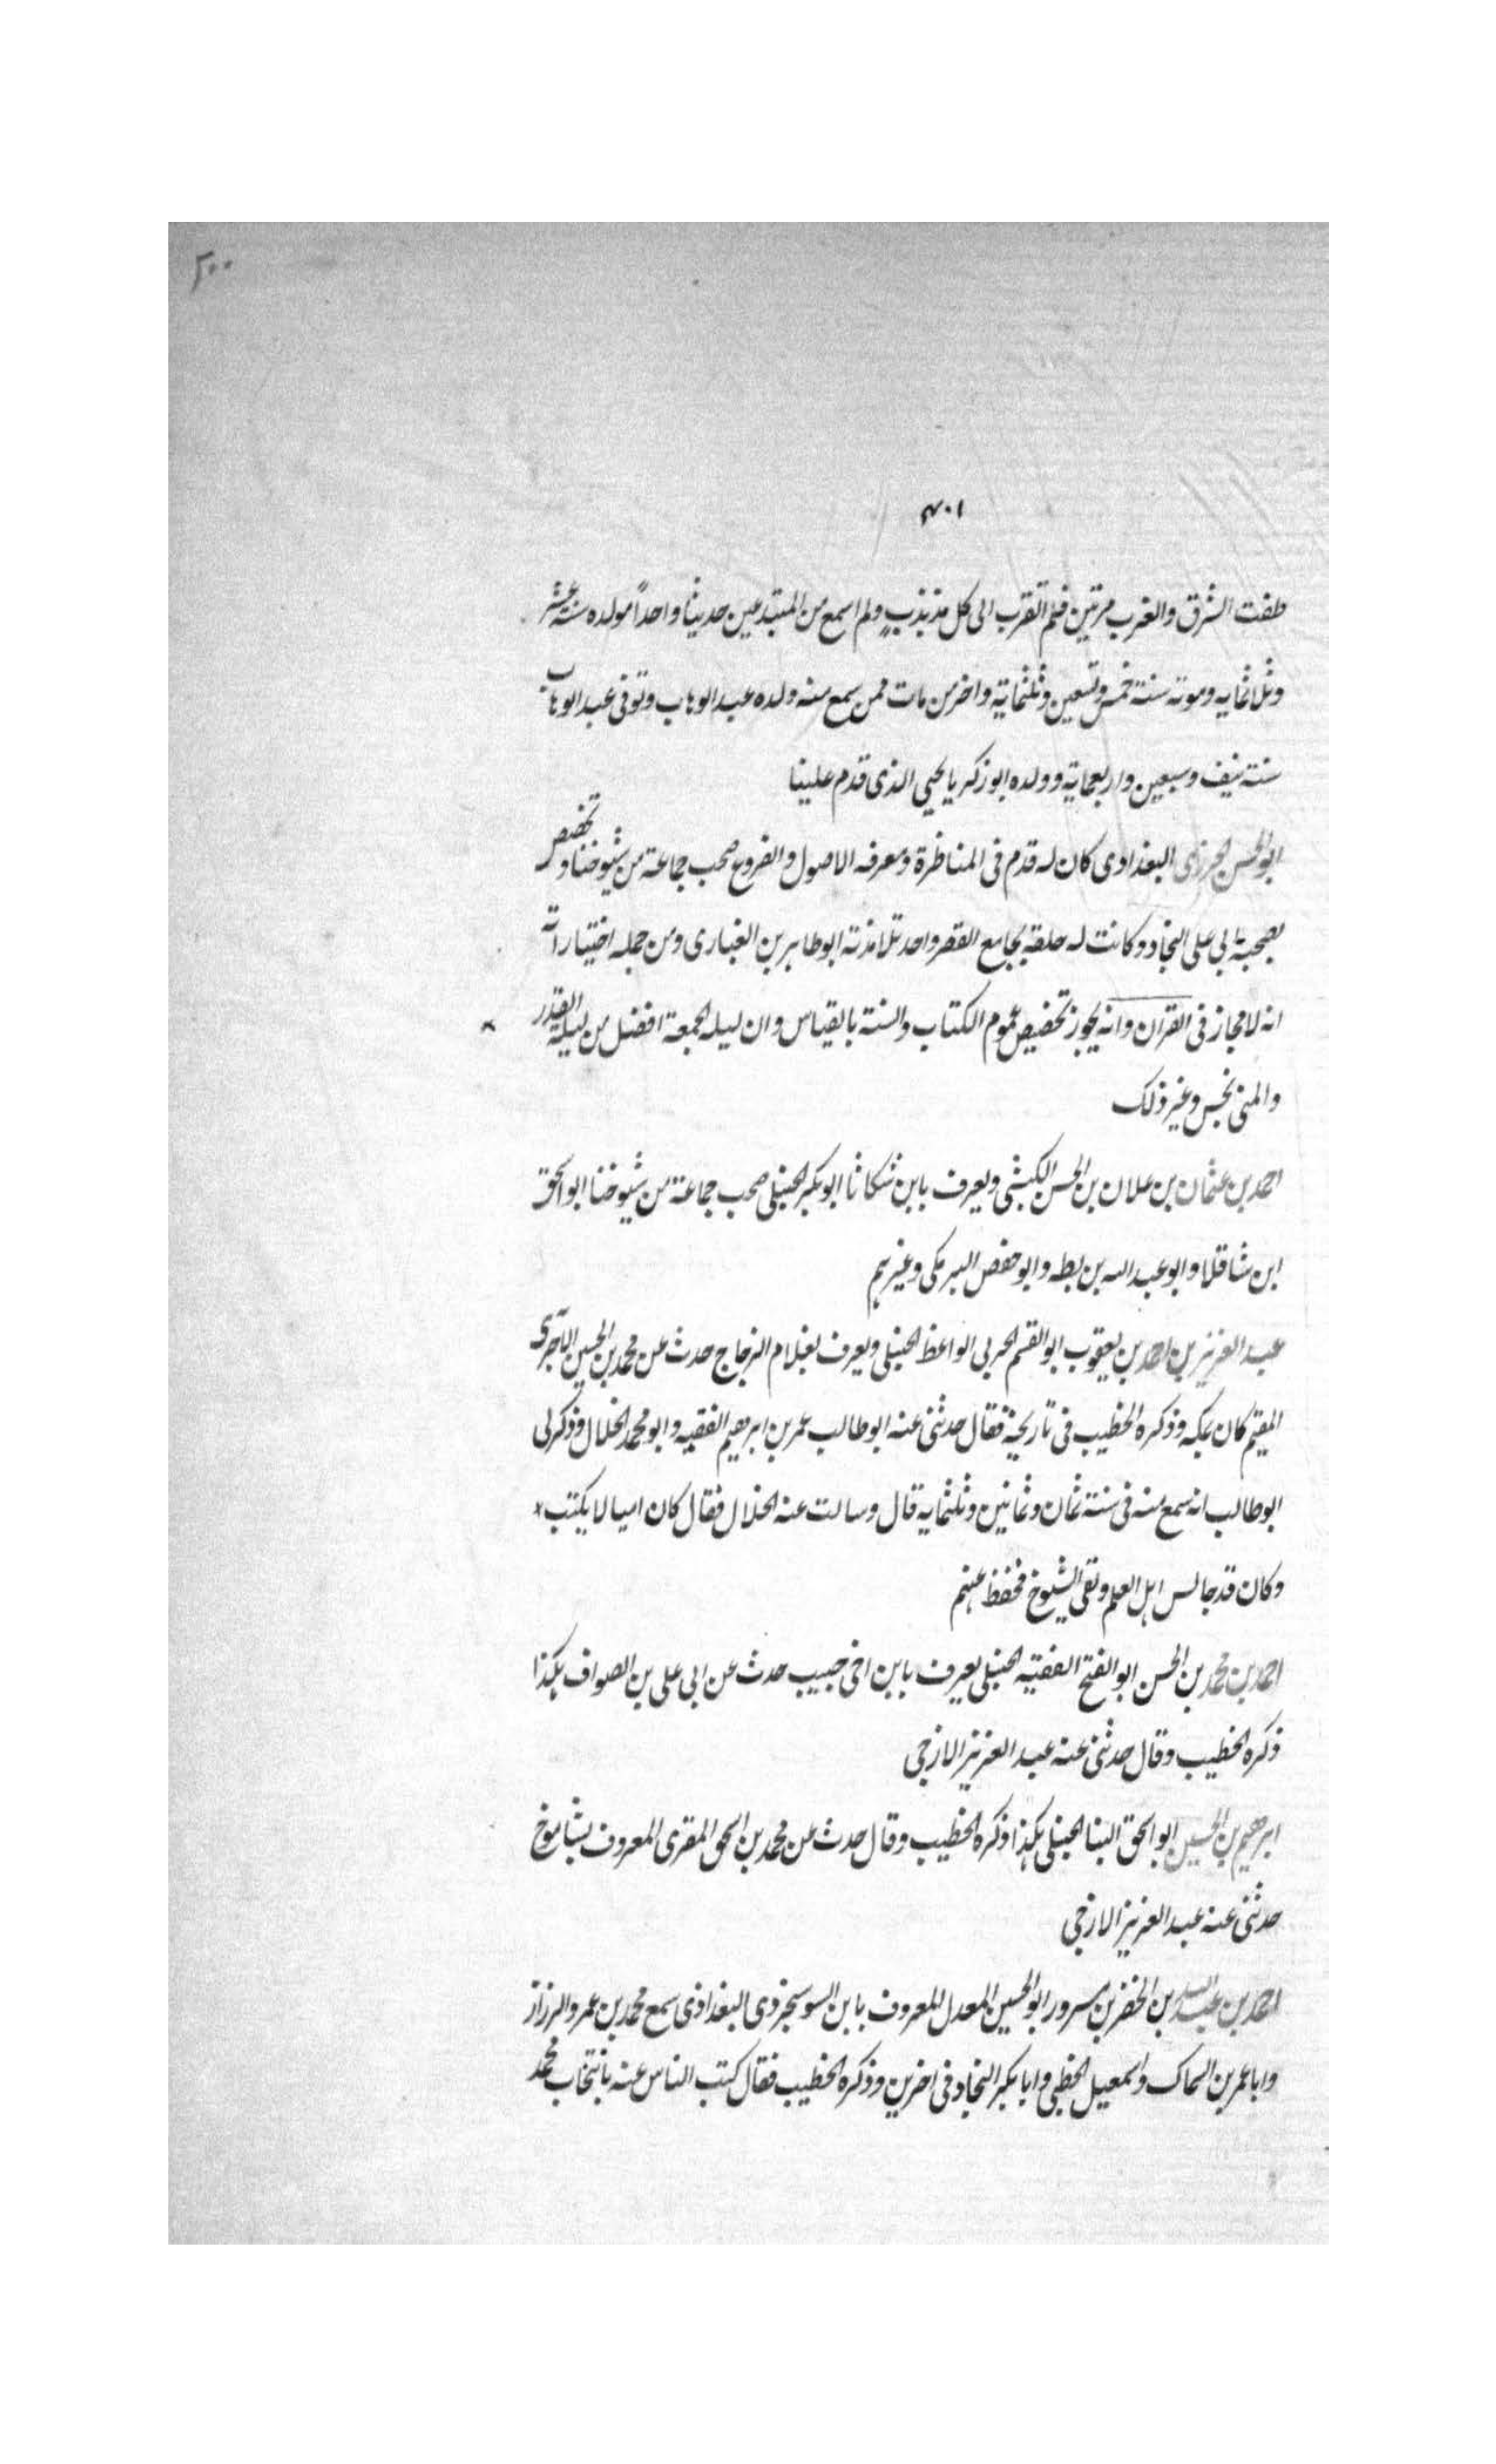 ٢٠٠
٤٠١
طفت الشرق والغرب مرتين فلم اتقرب الى كل مذبذبٍ ولم اسمع من المبتدعين حديثا واحداً مولده سنة عشر
وثلاثمايه وموته سنة خمس وتسعين وثلثماية واخر من مات ممن سمع منه ولده عبد الوهاب وتوفى عبد الوهاب
سنة نيف وسبعين واربعماية وولده ابو زكريا يحيى الذى قدم علينا
ابو الحسن الجزرى البغدادى كان له قدم فى المناظرة ومعرفه الاصول والفروع صحب جماعة من شيوخنا وتخصص
بصحبة ابى على النجاد وكانت له حلقة بجامع القصر واحد تلامذته ابو طاهر بن الغبارى ومن جمله اختياراته
انه لا مجاز فى القران وانه يجوز تخصيص عموم الكتاب والسنة بالقياس وان ليله الجمعة افضل من ليلة القدر
والمنى نجس وغير ذلك
احمد بن عثمان بن علان بن الحسن الكبشى ويعرف بابن شكاثا ابو بكر الحنبلى صحب جماعة من شيوخنا ابو اسحق
ابن شاقلا وابو عبد الله بن بطه وابو حفص البرمكى وغيرهم
عبد العزيز بن احمد بن يعقوب ابو القسم الحربى الواعظ الحنبلى ويعرف بغلام الزجاج حدث عن محمد بن الحسين الآجرى
المقيم كان بمكه وذكره الخطيب فى تاريخه فقال حدثنى عنه ابو طالب عمر بن ابرهيم الفقيه وابو محمد الخلال وذكر لى
ابو طالب انه سمع منه فى سنة ثمان وثمانين وثلثمايه قال وسالت عنه الخلال فقال كان اميا لا يكتب
وكان قد جالس اهل العلم ولقى الشيوخ فحفظ عنهم
احمد بن محمد بن الحسن ابو الفتح الفقيه الحنبلى يعرف بابن اخى حبيب حدث عن ابى على بن الصواف هكذا
ذكره الخطيب وقال حدثنى عنه عبد العزيز الازجى
ابرهيم بن الحسين ابو اسحق البنا الحنبلى هكذا ذكره الخطيب وقال حدث عن محمد بن اسحق المقرى المعروف بشاموخ
حدثنى عنه عبد العزيز الازجى
احمد بن عبد الله بن الخضر بن مسرور ابو الحسين المعدل المعروف بابن السوسنجردى البغدادى سمع محمد بن عمرو الرزاز
وابا عمر بن السماك واسمعيل الخطبى وابا بكر النجاد فى اخرين وذكره الخطيب فقال كتب الناس عنه بانتخاب محمد